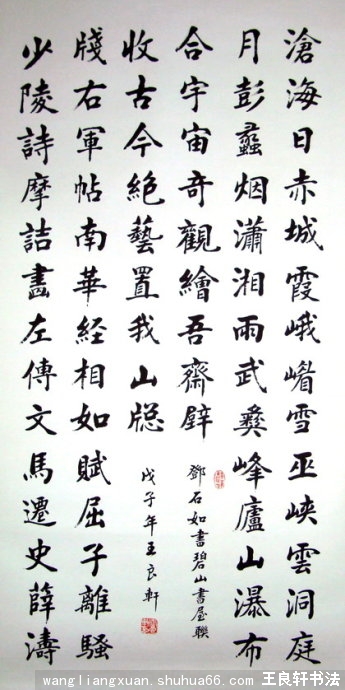 滄海日赤城霞峨嵋雪巫峽雲洞庭
月彭蠡烟瀟湘雨武彝峰廬山瀑布
合宇宙奇觀繪吾齋壁
鄧石如書碧山書屋聯
少陵詩摩詰畫左傳文馬遷史薛濤
牋右軍帖南華經相如賦屈子離騷
收古今絕藝置我山牕
戊子年王良軒
wangliangxuan.shuhua66.com 王良轩书法